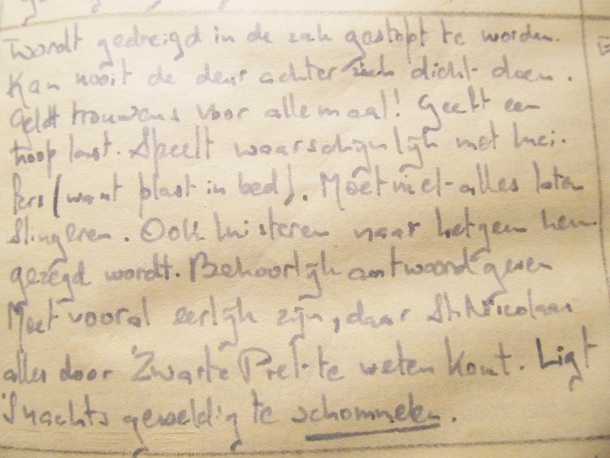 wordt gedreigd in de zak gestopt te worden.
Kan nooit de deur achter zich dicht doen.
Geldt trouwens voor allemaal! Geeft een
hoop last. Speelt waarschijnlijk met luci-
fers (want plast in bed). Moet niet alles laten
slingeren. Ook luisteren naar hetgeen hem
gezegd wordt. Behoorlijk antwoord geven
Moet vooral eerlijk zijn, daar St. Nicolaas
alles door Zwarte Piet te weten komt. Ligt
's nachts geweldig te schommelen.